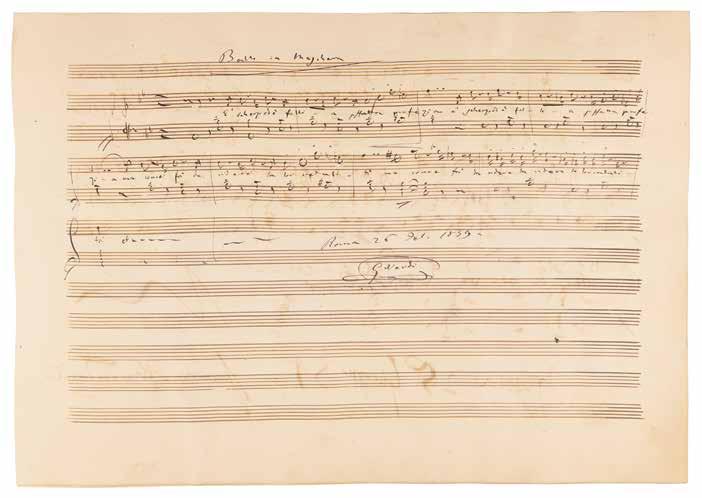 Ballo in Maschera
È scherzo od è follia siffatta profezia è scherzo od è follia siffatta profe
zia ma come fa da ridere la lor credulità ma come fa da ridere da ridere la lor creduli
Roma 26 Feb. 1859
GVerdi